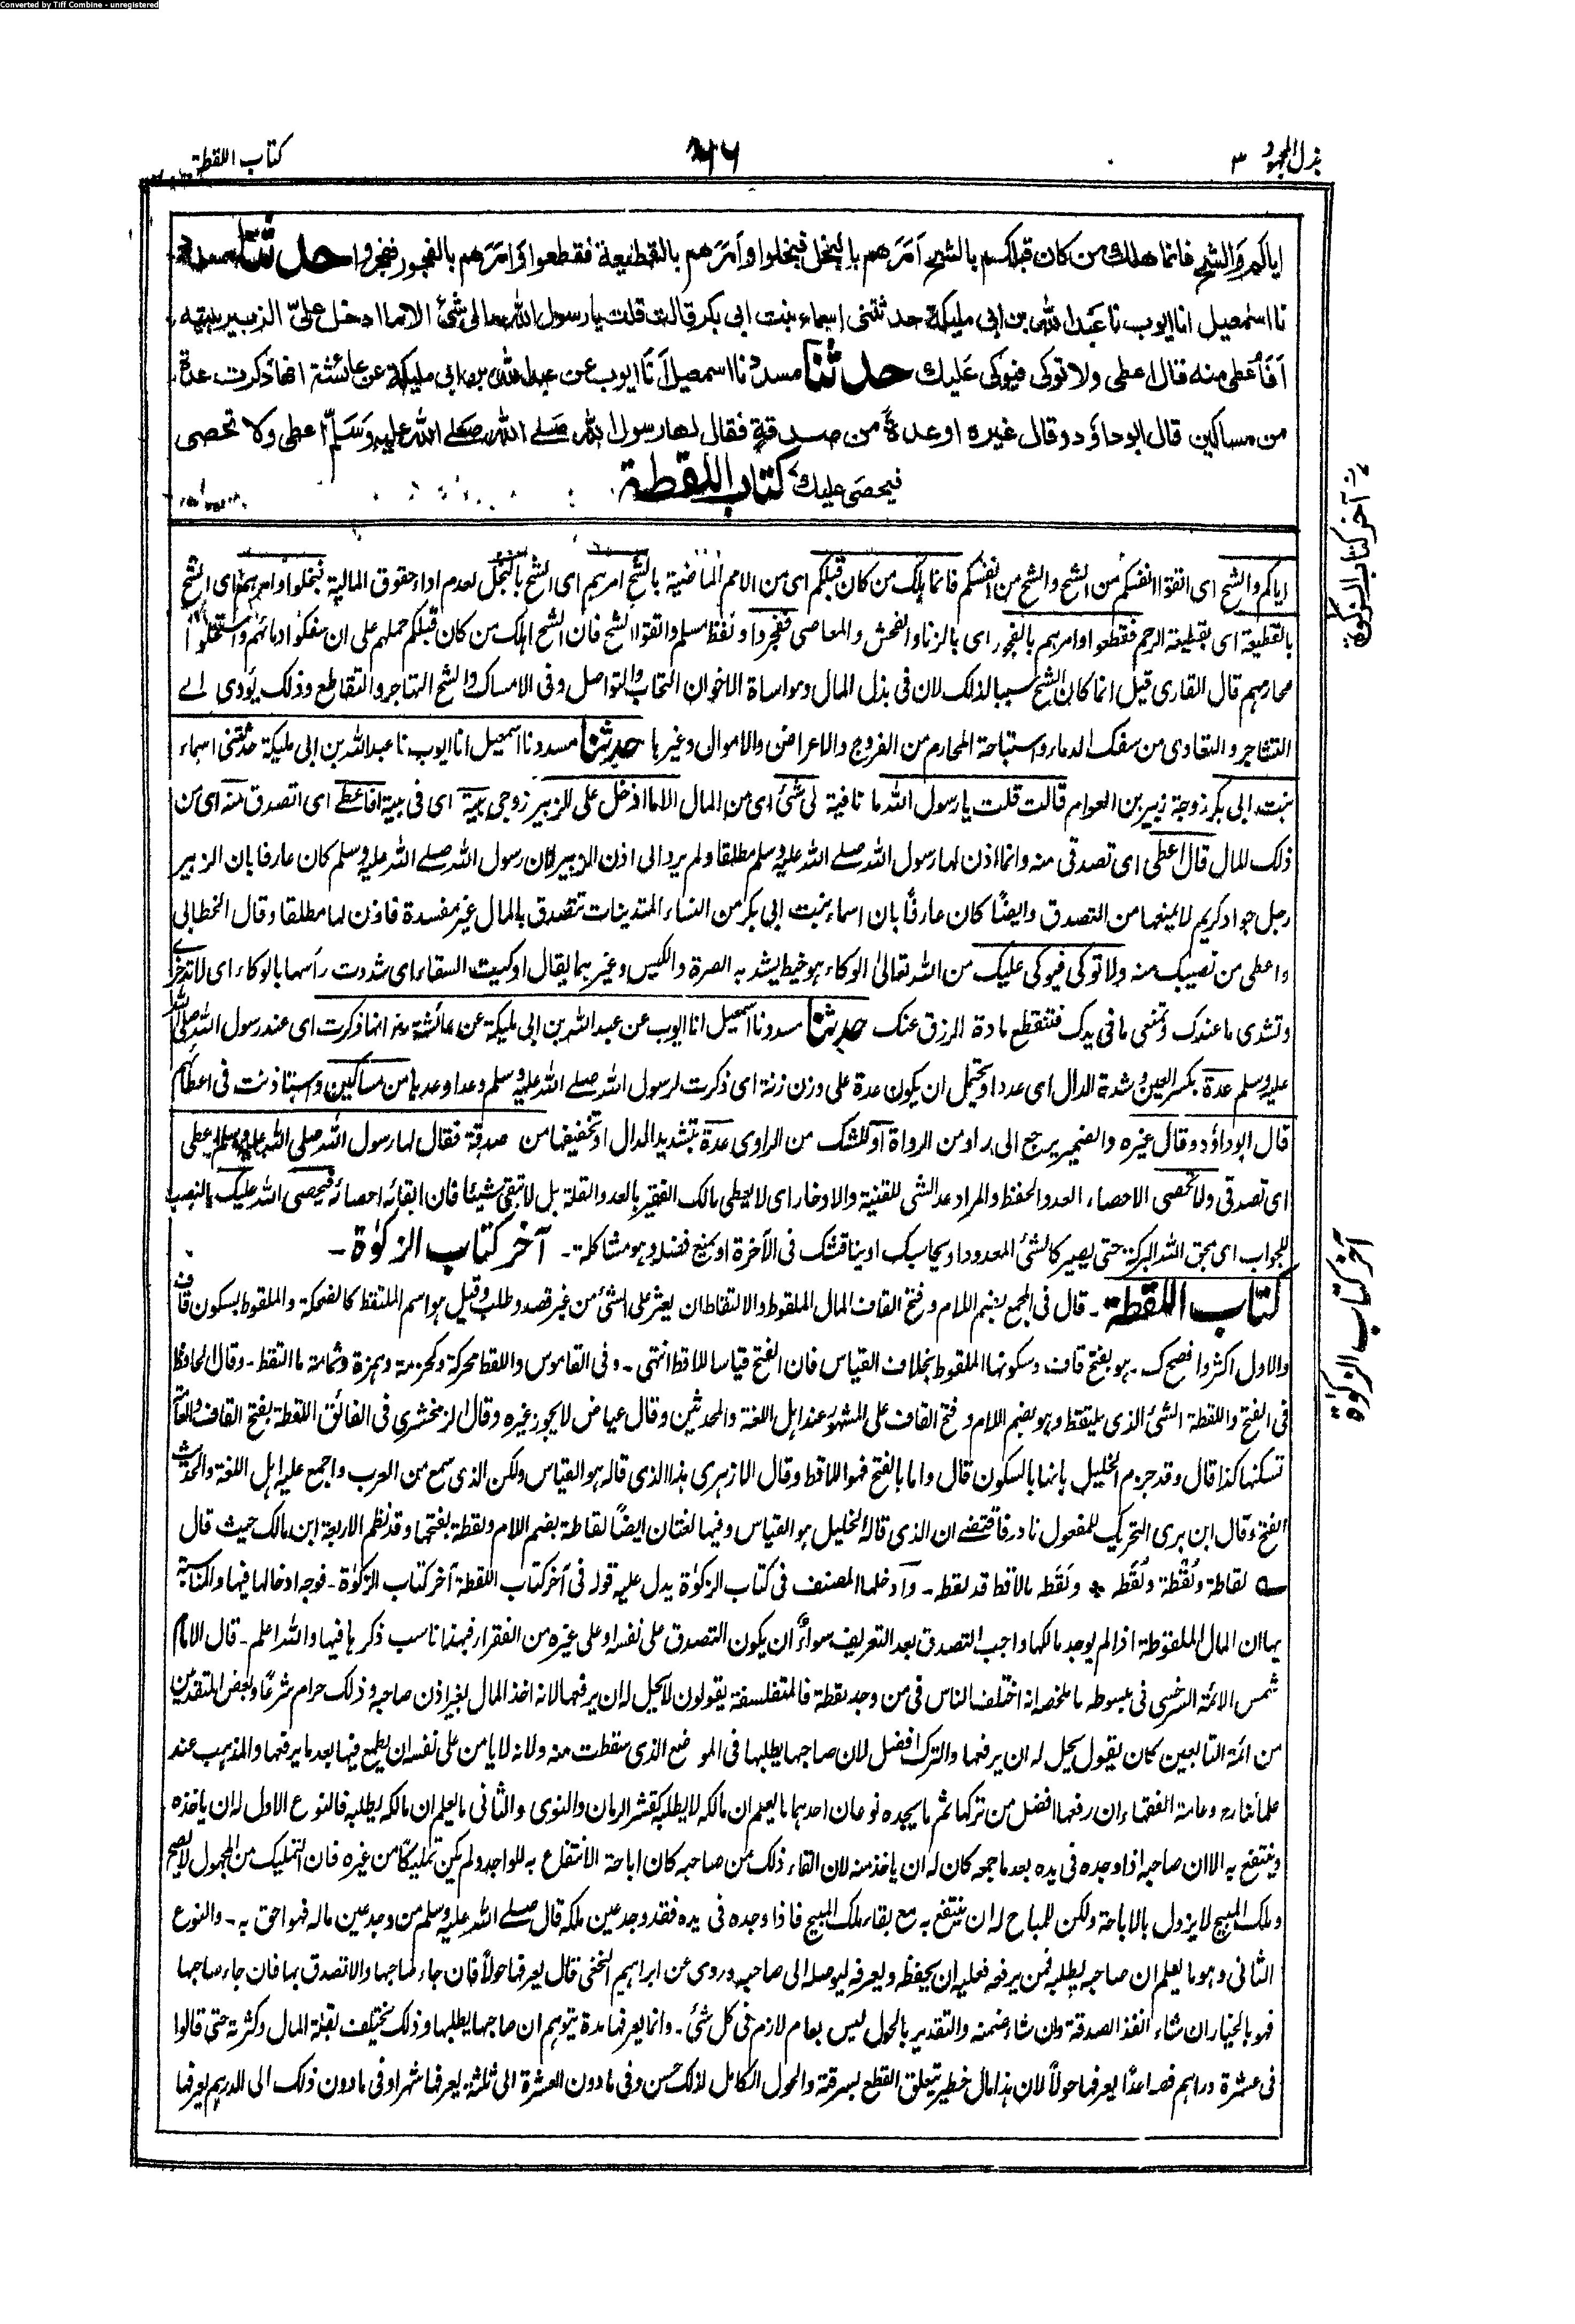 Converted by Tiff Combine - unregistered
بذل المجهود ٣
٦٦
كتاب اللقطة
اياكم والشح فانما هلك من كان قبلكم بالشح اَمَرَهم بالبخل فبخلوا واَمَرَهم بالقطيعة فقطعوا وَامَرَهم بالفجور ففجروا حدثنا مسدد
نا اسمعيل انا ايوب نا عبد الله بن ابى مليكة حدثتنى اسماء بنت ابى بكر قالت قلت يا رسول الله مالى شئ الا ما ادخل علىّ الزبير بيته
اَفَاُعطى منه قال اعطى ولا توكى فيوكى عَليك حدثنا مسدد نا اسمعيل اَنَا ايوب عن عبد الله بن ابى مليكة عن عائشة انها ذكرت عدة
من مساكين قال ابو داؤد وقال غيره او عدة من صدقة فقال لها رسول الله صلى الله عليه وَسَلّم اعطى ولا تحصى
فيحصى عليك كتاب اللقطة
اياكم والشح اى اتقوا انفسكم من الشح والشح من انفسكم فانما هلك من كان قبلكم اى من الامم الماضية بالشح امرهم اى الشح بالبخل لعدم اداء حقوق المالية فبخلوا وامرهم اى الشح
بالقطيعة اى بقطيعة الرحم فقطعوا وامرهم بالفجور اى بالزنا والفحش والمعاصى ففجروا ولفظ مسلم واتقوا الشح فان الشح اهلك من كان قبلكم حملهم على ان سفكوا دمائهم واستحلوا
محارمهم قال القارى قيل انما كان الشح سببا لذلك لان فى بذل المال ومواساة الاخوان التحاب والتواصل وفى الامساك والشح التهاجر والتقاطع وذلك يؤدى الى
التشاجر والتعادى من سفك الدماء واستباحة المحارم من الفروج والاعراض والاموال وغيرها حدثنا مسدد نا اسمعيل انا ايوب نا عبد الله بن ابى مليكة حدثتنى اسماء
بنت ابى بكر زوجة زبير بن العوام قالت قلت يا رسول الله ما نافية لى شئ اى من المال الا ما ادخل على الزبير زوجى بيته اى فى بيته افاعطى اى اتصدق منه اى من
ذلك المال قال اعطى اى تصدقى منه وانما اذن لها رسول الله صلى الله عليه وسلم مطلقا ولم يرد الى اذن الزبير لان رسول الله صلى الله عليه وسلم كان عارفا بان الزبير
رجل جواد كريم لا يمنعها من التصدق وايضًا كان عارفًا بان اسماء بنت ابى بكر من النساء المتدينات تتصدق بالمال غير مفسدة فاذن لها مطلقا وقال الخطابى
واعطى من نصيبك منه ولا توكى فيوكى عليك من الله تعالى الوكاء هو خيط يشد به الصرة والكيس وغيرهما يقال اوكيت السقاء اى شددت رأسها بالوكاء اى لا تدخرى
وتشدى ما عندك وتمنعى ما فى يدك فتنقطع مادة الرزق عنك حدثنا مسدد نا اسمعيل انا ايوب عن عبد الله بن ابى مليكة عن عائشة انها ذكرت اى عند رسول الله صلى الله
عليه وسلم عدة بكسر العين وشدة الدال اى عددا ويحتمل ان يكون عدة على وزن زنة اى ذكرت لرسول الله صلى الله عليه وسلم وعدا وعدها من مساكين واستاذنت فى اعطائهم
قال ابو داؤد وقال غيره والضمير يرجع الى راو من الرواة او للشك من الراوى عدة بتشديد الدال او تخفيفها من صدقة فقال لها رسول الله صلى الله عليه وسلم اعطى
اى تصدقى ولا تحصى الاحصاء العد والحفظ والمراد عد الشى للقنية والادخار اى لا يعطى مالك الفقير بالعد والقلة بل لا تبقى شيئا فان ابقائه احصائه فيحصى الله عليك بالنصب
للجواب اى يمحق الله البركة حتى يصير كالشئ المعدود او يحاسبك او يناقشك فى الآخرة او يمنع فضله وهو مشاكلة - آخر كتاب الزكوٰة -
كتاب اللقطة - قال فى المجمع بضم اللام وفتح القاف المال الملقوط والالتقاط ان يعثر على الشئ من غير قصد وطلب وقيل هو اسم الملتقط كالضحكة والملقوط بسكون قاف
والاول اكثر وافصح ك - هو بفتح قاف وسكونها الملقوط بخلاف القياس فان الفتح قياسا للاقط انتهى - وفى القاموس واللقط محركة وكحزمة وهمزة وثمامة ما التقط - وقال الحافظ
فى الفتح واللقطة الشئ الذى يلتقط وهو بضم اللام وفتح القاف على المشهور عند اهل اللغة والمحدثين وقال عياض لا يجوز غيره وقال الزمخشرى فى الفائق اللقطة بفتح القاف والعامة
تسكنها كذا قال وقد جزم الخليل بانها بالسكون قال واما بالفتح فهو اللاقط وقال الازهرى هذا الذى قاله هو القياس ولكن الذى سمع من العرب واجمع عليه اهل اللغة والحديث
الفتح وقال ابن برى التحريك للمفعول نادر فاقتضى ان الذى قاله الخليل هو القياس وفيها لغتان ايضًا لقاطة بضم اللام ولقطة بفتحها وقد نظم الاربعة ابن مالك حيث قال
لقاطة ولُقْطة ولُقَطه ❖ ولَقَطه مالاقط قد لقطه - وادخلها المصنف فى كتاب الزكوٰة يدل عليه قوله فى آخر كتاب اللقطة آخر كتاب الزكوٰة - فوجه ادخالها فيها والمناسبة
بها ان المال الملقوطة اذا لم يوجد مالكها واجب التصدق بعد التعريف سواءٌ ان يكون التصدق على نفسه او على غيره من الفقراء فبهذا ناسب ذكرها فيها والله اعلم - قال الامام
شمس الائمة السرخسى فى مبسوطه ما ملخصه انه اختلف الناس فى من وجد لقطة فالمتفلسفة يقولون لا يحل له ان يرفعها لانه اخذ المال بغير اذن صاحبه وذلك حرام شرعًا وبعض المتقدمين
من ائمة التابعين كان يقول يحل له ان يرفعها والترك افضل لان صاحبها يطلبها فى الموضع الذى سقطت منه ولانه لا يامن على نفسه ان يطمع فيها بعد ما يرفعها والمذهب عند
علمائنا رح وعامة الفقهاء ان رفعها افضل من تركها ثم ما يجده نوعان احدهما ما يعلم ان مالكه لا يطلبه كقشر الرمان والنوى والثانى ما يعلم ان مالكه يطلبه فالنوع الاول له ان ياخذه
وينتفع به الا ان صاحبه اذا وجده فى يده بعد ما جمعه كان له ان ياخذ منه لان القاء ذلك من صاحبه كان اباحة الانتفاع به للواجد ولم يكن تمليكًا من غيره فان التمليك من المجهول لا يصح
وملك المبيح لا يزول بالاباحة ولكن للمباح له ان ينتفع به مع بقاء ملك المبيح فاذا وجده فى يده فقد وجد عين ملكه قال صلى الله عليه وسلم من وجد عين ماله فهو احق به - والنوع
الثانى وهو ما يعلم ان صاحبه يطلبه فمن يرفعه فعليه ان يحفظه ويعرفه ليوصله الى صاحبه وروى عن ابراهيم النخعى قال يعرفها حولاً فان جاء صاحبها والا تصدق بها فان جاء صاحبها
فهو بالخيار ان شاء انفذ الصدقة وان شاء ضمنه والتقدير بالحول ليس بعام لازم فى كل شئ - وانما يعرفها مدة يتوهم ان صاحبها يطلبها وذلك يختلف بقلة المال وكثرته حتى قالوا
فى عشرة دراهم فصاعدًا يعرفها حولاً لان هذا مال خطير يتعلق القطع بسرقته والحول الكامل لذلك حسن وفى ما دون العشرة الى ثلثة يعرفها شهرا وفى ما دون ذلك الى الدرهم يعرفها
آخر كتاب الزكوٰة
آخر كتاب الزكوٰة